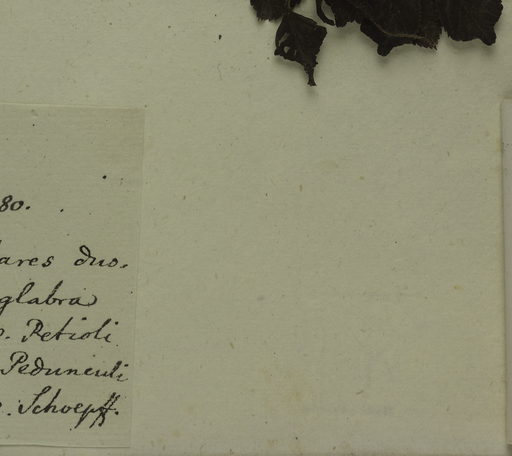 80.
ares duo.
glabra
. Petioli
Pedunculi
. Schoepff.